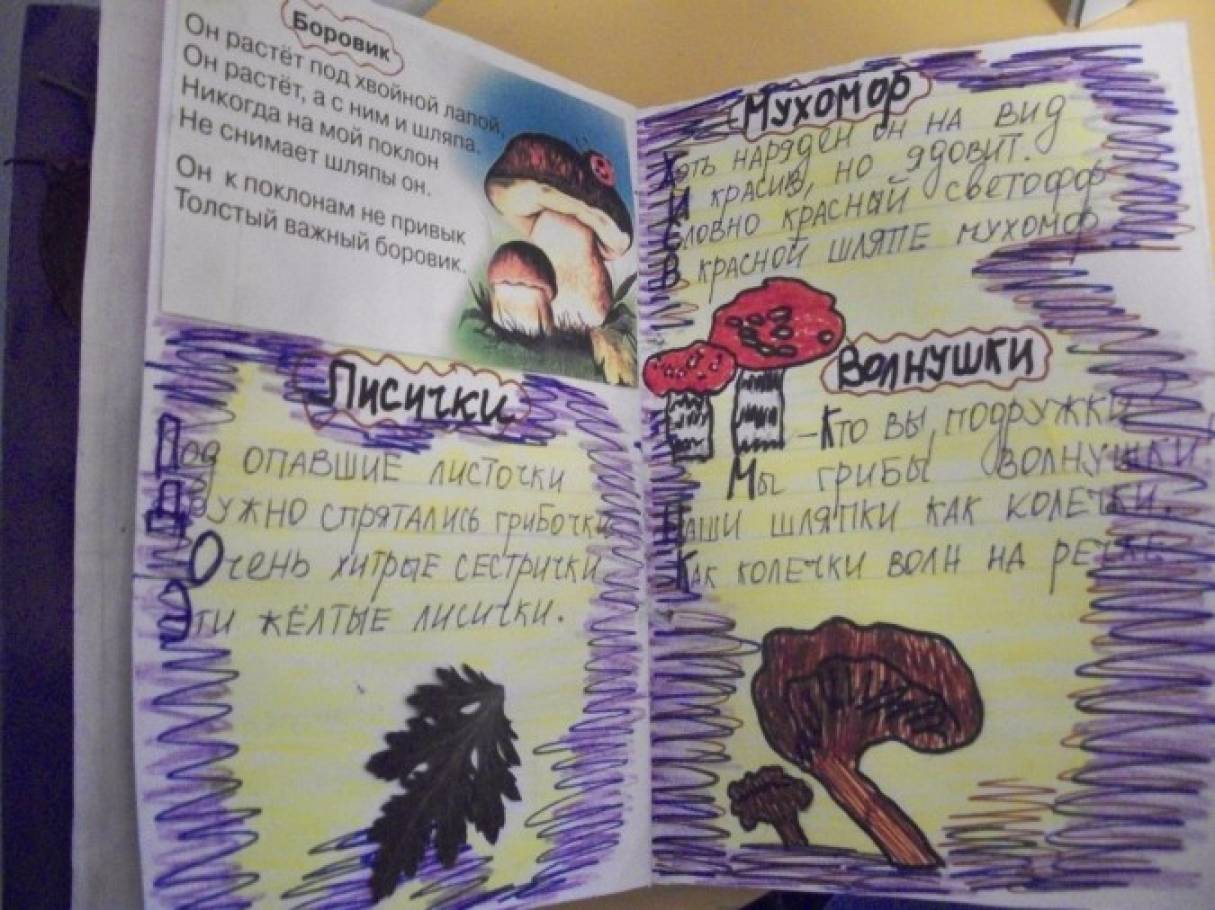 Боровик
Он растёт под хвойной лапой,
Он растёт, а с ним и шляпа.
Никогда на мой поклон
Не снимает шляпы он.
Он к поклонам не привык
Толстый важный боровик.
Лисички
Под опавшие листочки
Дружно спрятались грибочки
Очень хитрые сестрички
Эти жёлтые лисички.
Мухомор
Хоть наряден он на вид
И красив, но ядовит.
Словно красный светофор
В красной шляпе мухомор
Волнушки
-Кто вы, подружки
Мы грибы волнушки
Наши шляпки как колечки.
Как колечки волн на речке